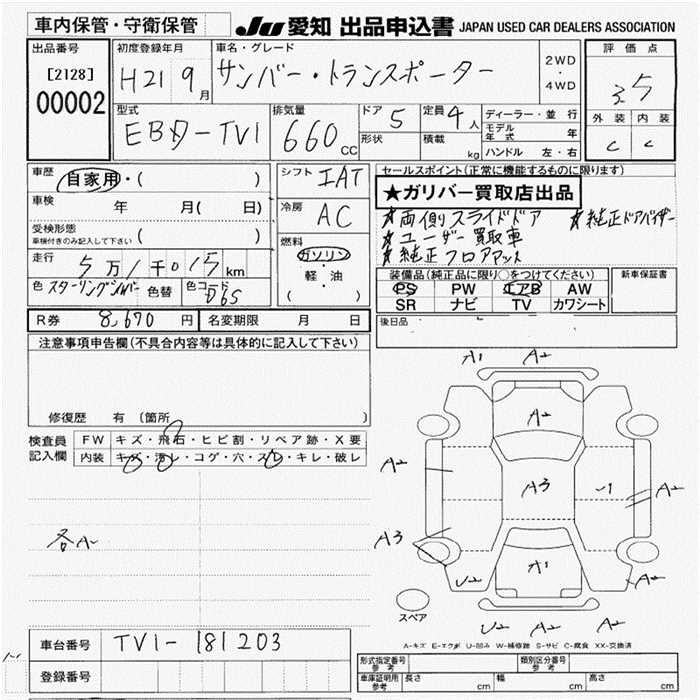 車内保管・守衛保管
JU 愛知 出品申込書 JAPAN USED CAR DEALERS ASSOCIATION
出品番号
[2128]
00002
初度登録年月
H21 9月
車名・グレード
サンバー・トランスポーター
2WD
・
4WD
評価点
3.5
外装 内装
C C
型式
EBD-TV1
排気量
660cc
ドア 5
形状
定員 4人
積載 kg
ディーラー・並行
モデル年式 年
ハンドル 左・右
車歴 自家用・( )
車検 年 月( 日)
受検形態
車検付きのみ記入して下さい ( )
走行 5万1千015km
色 スターリングシルバー 色替 色コード D6S
シフト IAT
冷房 AC
燃料
ガソリン
・
軽・油
( )
セールスポイント(正常に機能するものに限ります)
★ガリバー買取店出品
★両側スライドドア ★純正ドアバイザー
★ユーザー買取車
★純正フロアマット
装備品(純正品に限り○をつけてください)
PS PW エアB AW
SR ナビ TV カワシート
新車保証書
後日品
R券 8,670円 名変期限 月 日
注意事項申告欄(不具合内容等は具体的に記入して下さい)
修復歴 有(箇所
検査員
記入欄
FW キズ・飛石・ヒビ割・リペア跡・X要
内装 キズ・汚レ・コゲ・穴・スレ・キレ・破レ
各A
A1 A2
A2
A2
A3
-1
A2
A3
A1
U2
A2
スペア
U2 A2 A2
A-キズ E-エクボ U-凹み W-補修跡 S-サビ C-腐食 XX-交換済
車台番号 TV1-181203
登録番号
形式指定番号
参考
類別区分番号
参考
車庫証明用
参考
長さ cm 幅 cm 高さ cm